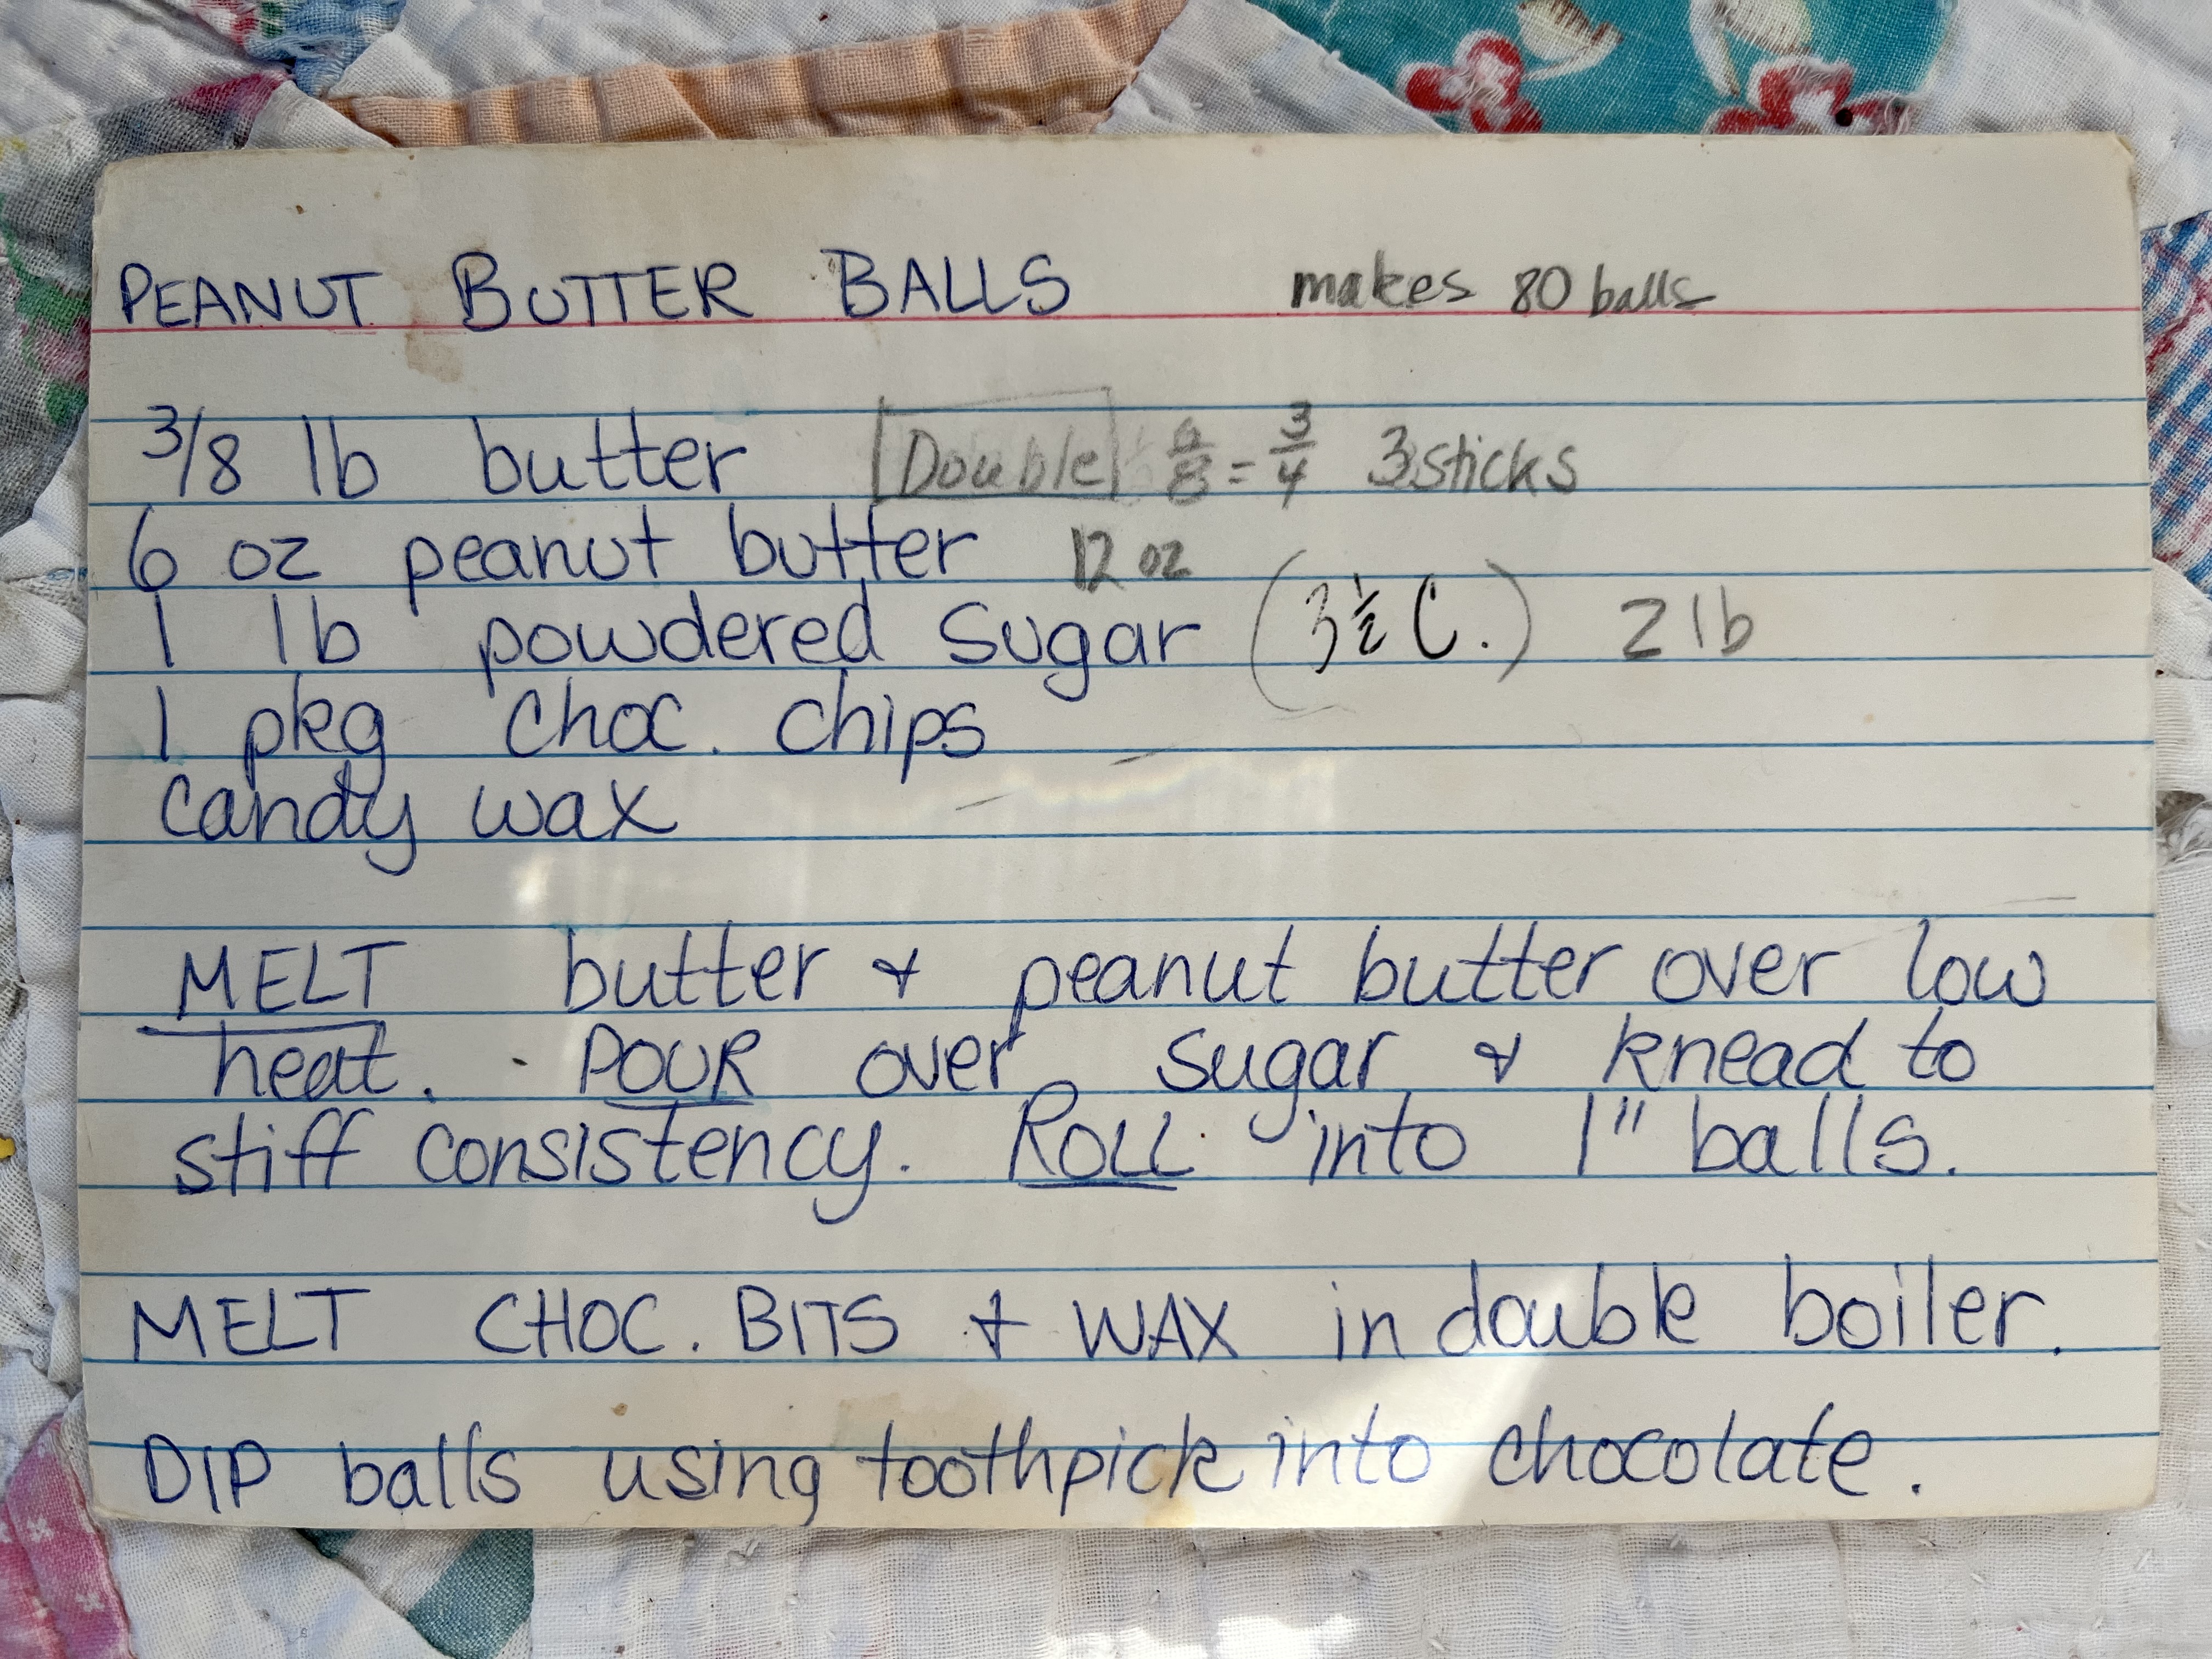 PEANUT BUTTER BALLS makes 80 balls
3/8 lb butter Double 6/8 = 3/4 3 sticks
6 oz peanut butter 12 oz
1 lb powdered sugar (3 1/2 C.) 2 lb
1 pkg choc. chips
candy wax
MELT butter & peanut butter over low
heat. POUR over sugar & knead to
stiff consistency. ROLL into 1" balls.
MELT CHOC. BITS & WAX in double boiler.
DIP balls using toothpick into chocolate.